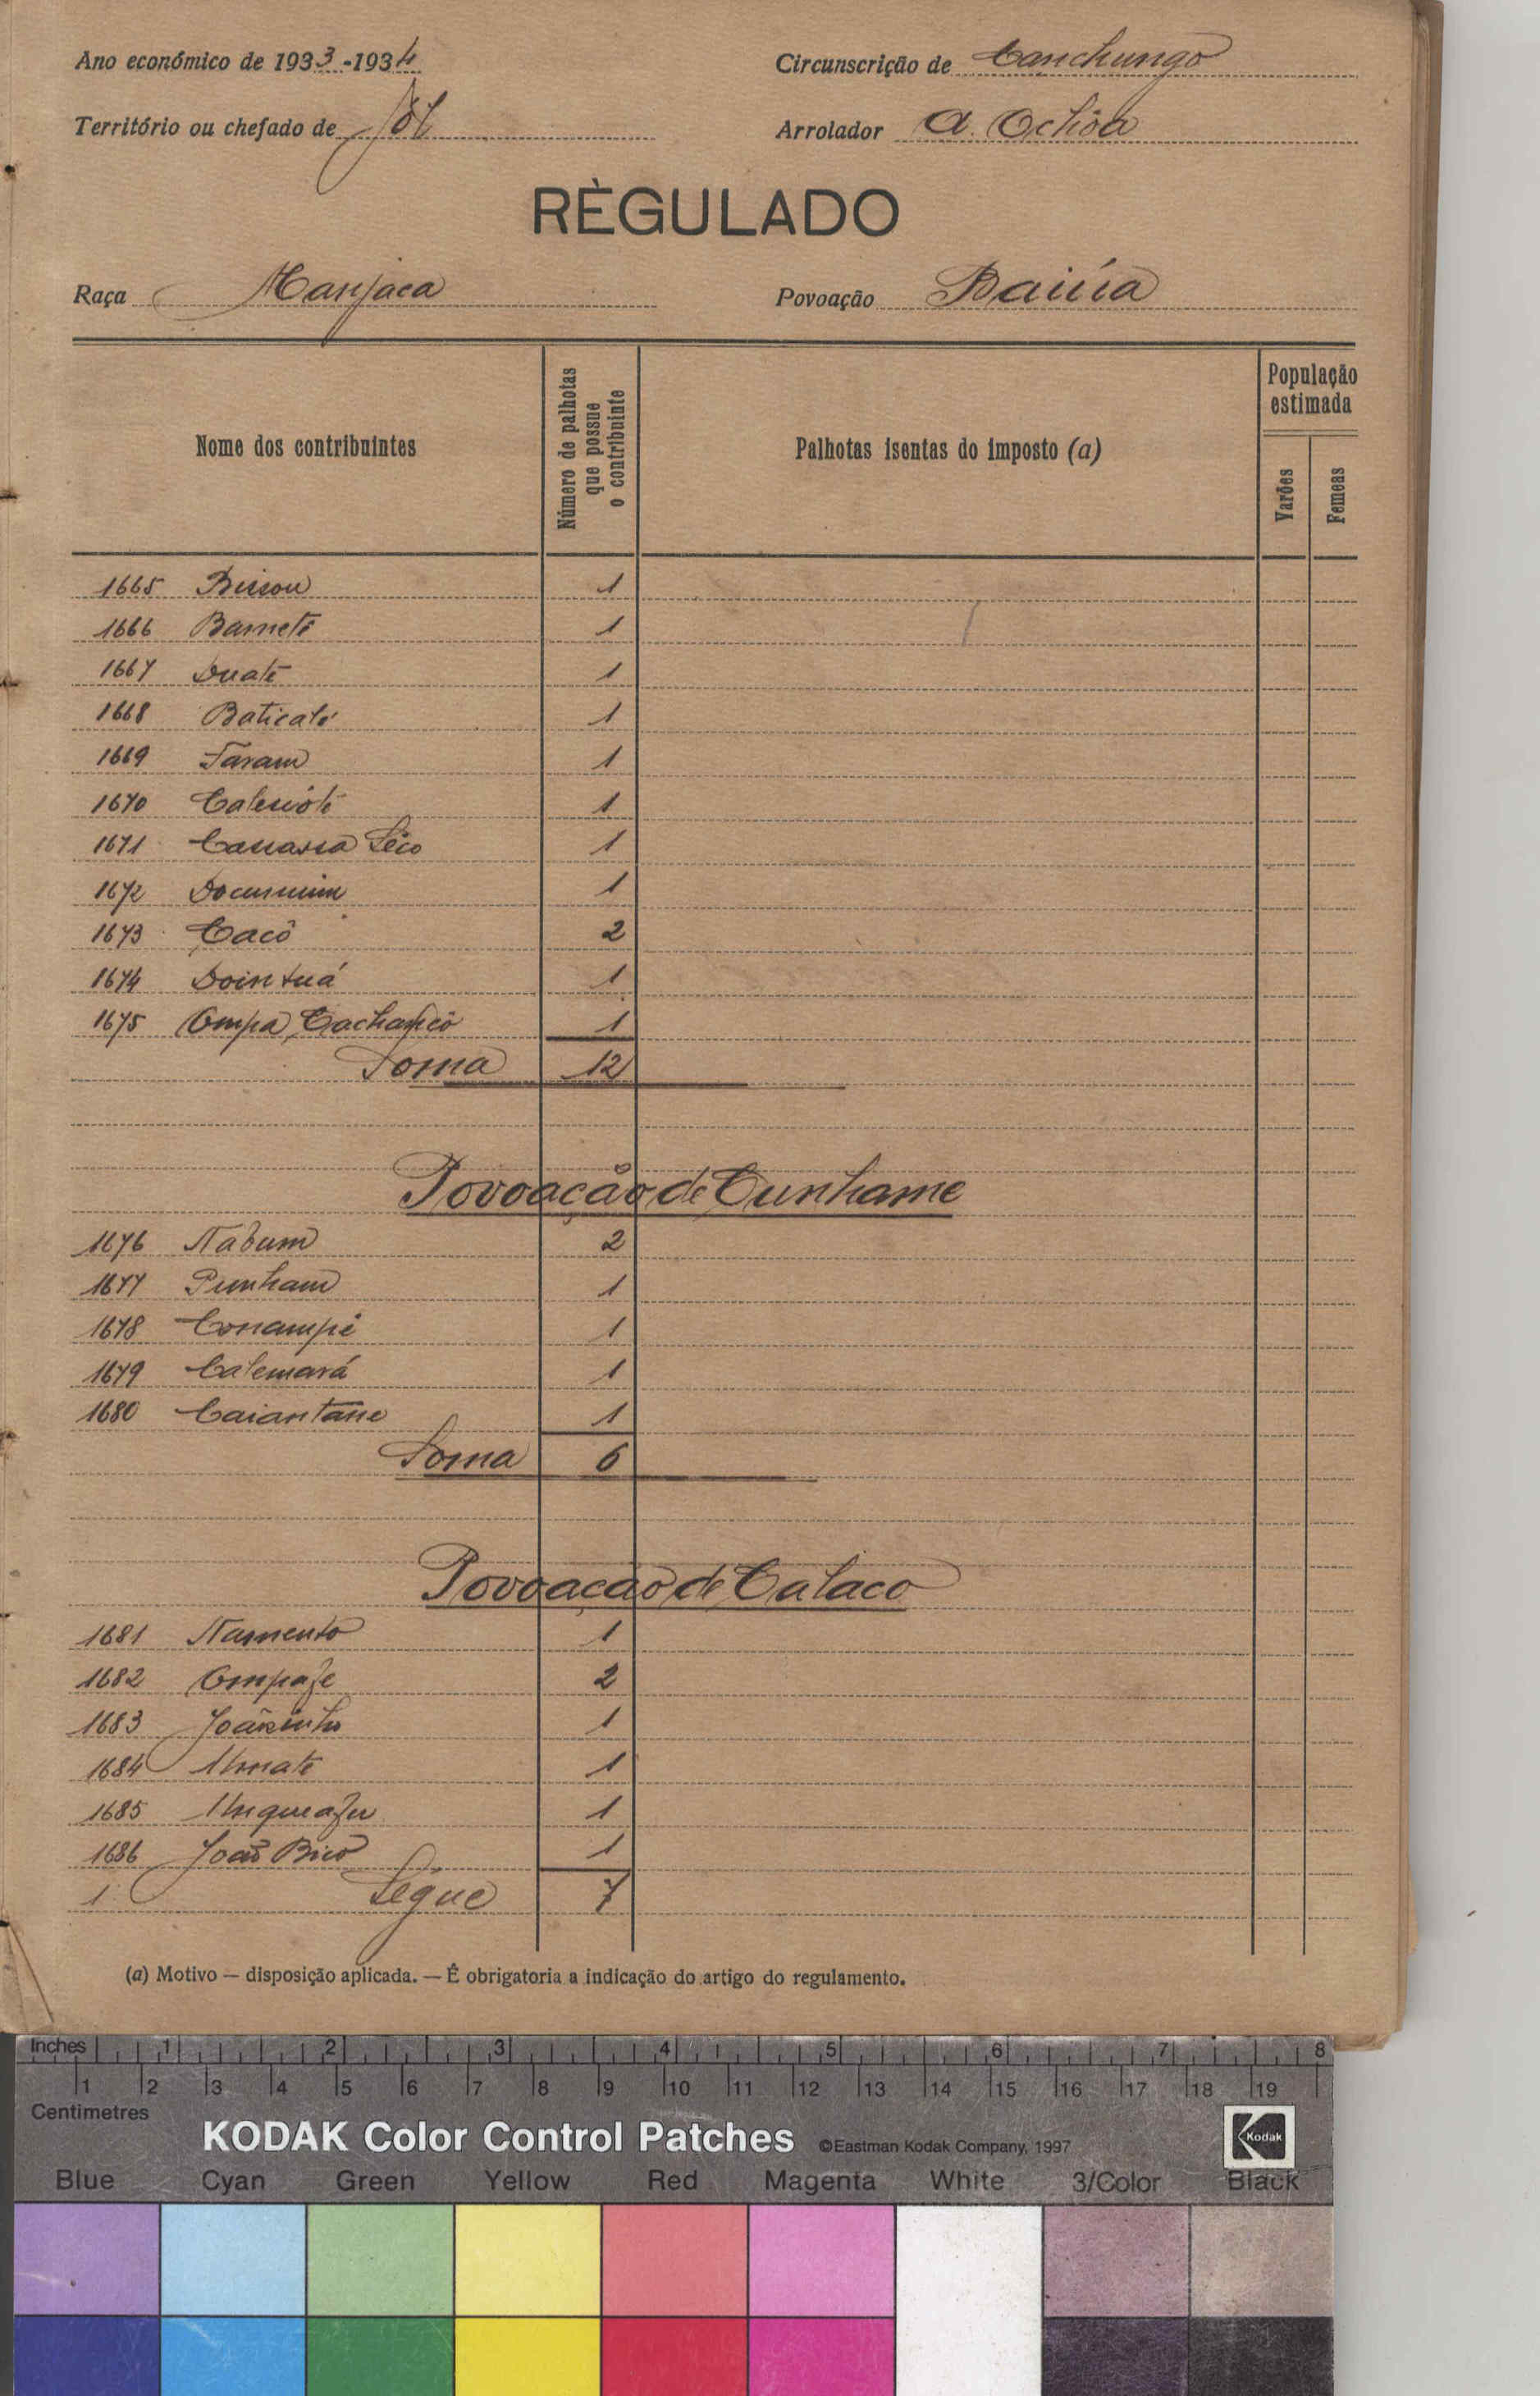 Ano económico de 1933-1934
Circunscrição de Canchungo
Território ou chefado de Jól
Arrolador A. Ochôa
RÈGULADO
Raça Manjaca
Povoação Baiúa
Nome dos contribuintes
Número de palhotas que possue o contribuinte
Palhotas isentas do imposto (a)
População estimada
Varões
Femeas
1665 1
1666 Bameté 1
1667 Duaté 1
1668 Baticalé 1
1669 Faram 1
1670 1
1671 Séco 1
1672 1
1673 Cacô 2
1674 Dointuá 1
1675 Ompa 1
Soma 12
Povoação de Cunhame
1676 Nabum 2
1677 Punham 1
1678 Conampé 1
1679 Calemará 1
1680 Caiantane 1
Soma 6
Povoação de Calaco
1681 Namento 1
1682 Ompafe 2
1683 Joãosinho 1
1684 1
1685 1
1686 João Bico 1
1 Ségue 7
(a) Motivo — disposição aplicada. — É obrigatoria a indicação do artigo do regulamento.
Inches 1 2 3 4 5 6 7 8
1 2 3 4 5 6 7 8 9 10 11 12 13 14 15 16 17 18 19
Centimetres
KODAK Color Control Patches ©Eastman Kodak Company, 1997 Kodak
Blue Cyan Green Yellow Red Magenta White 3/Color Black